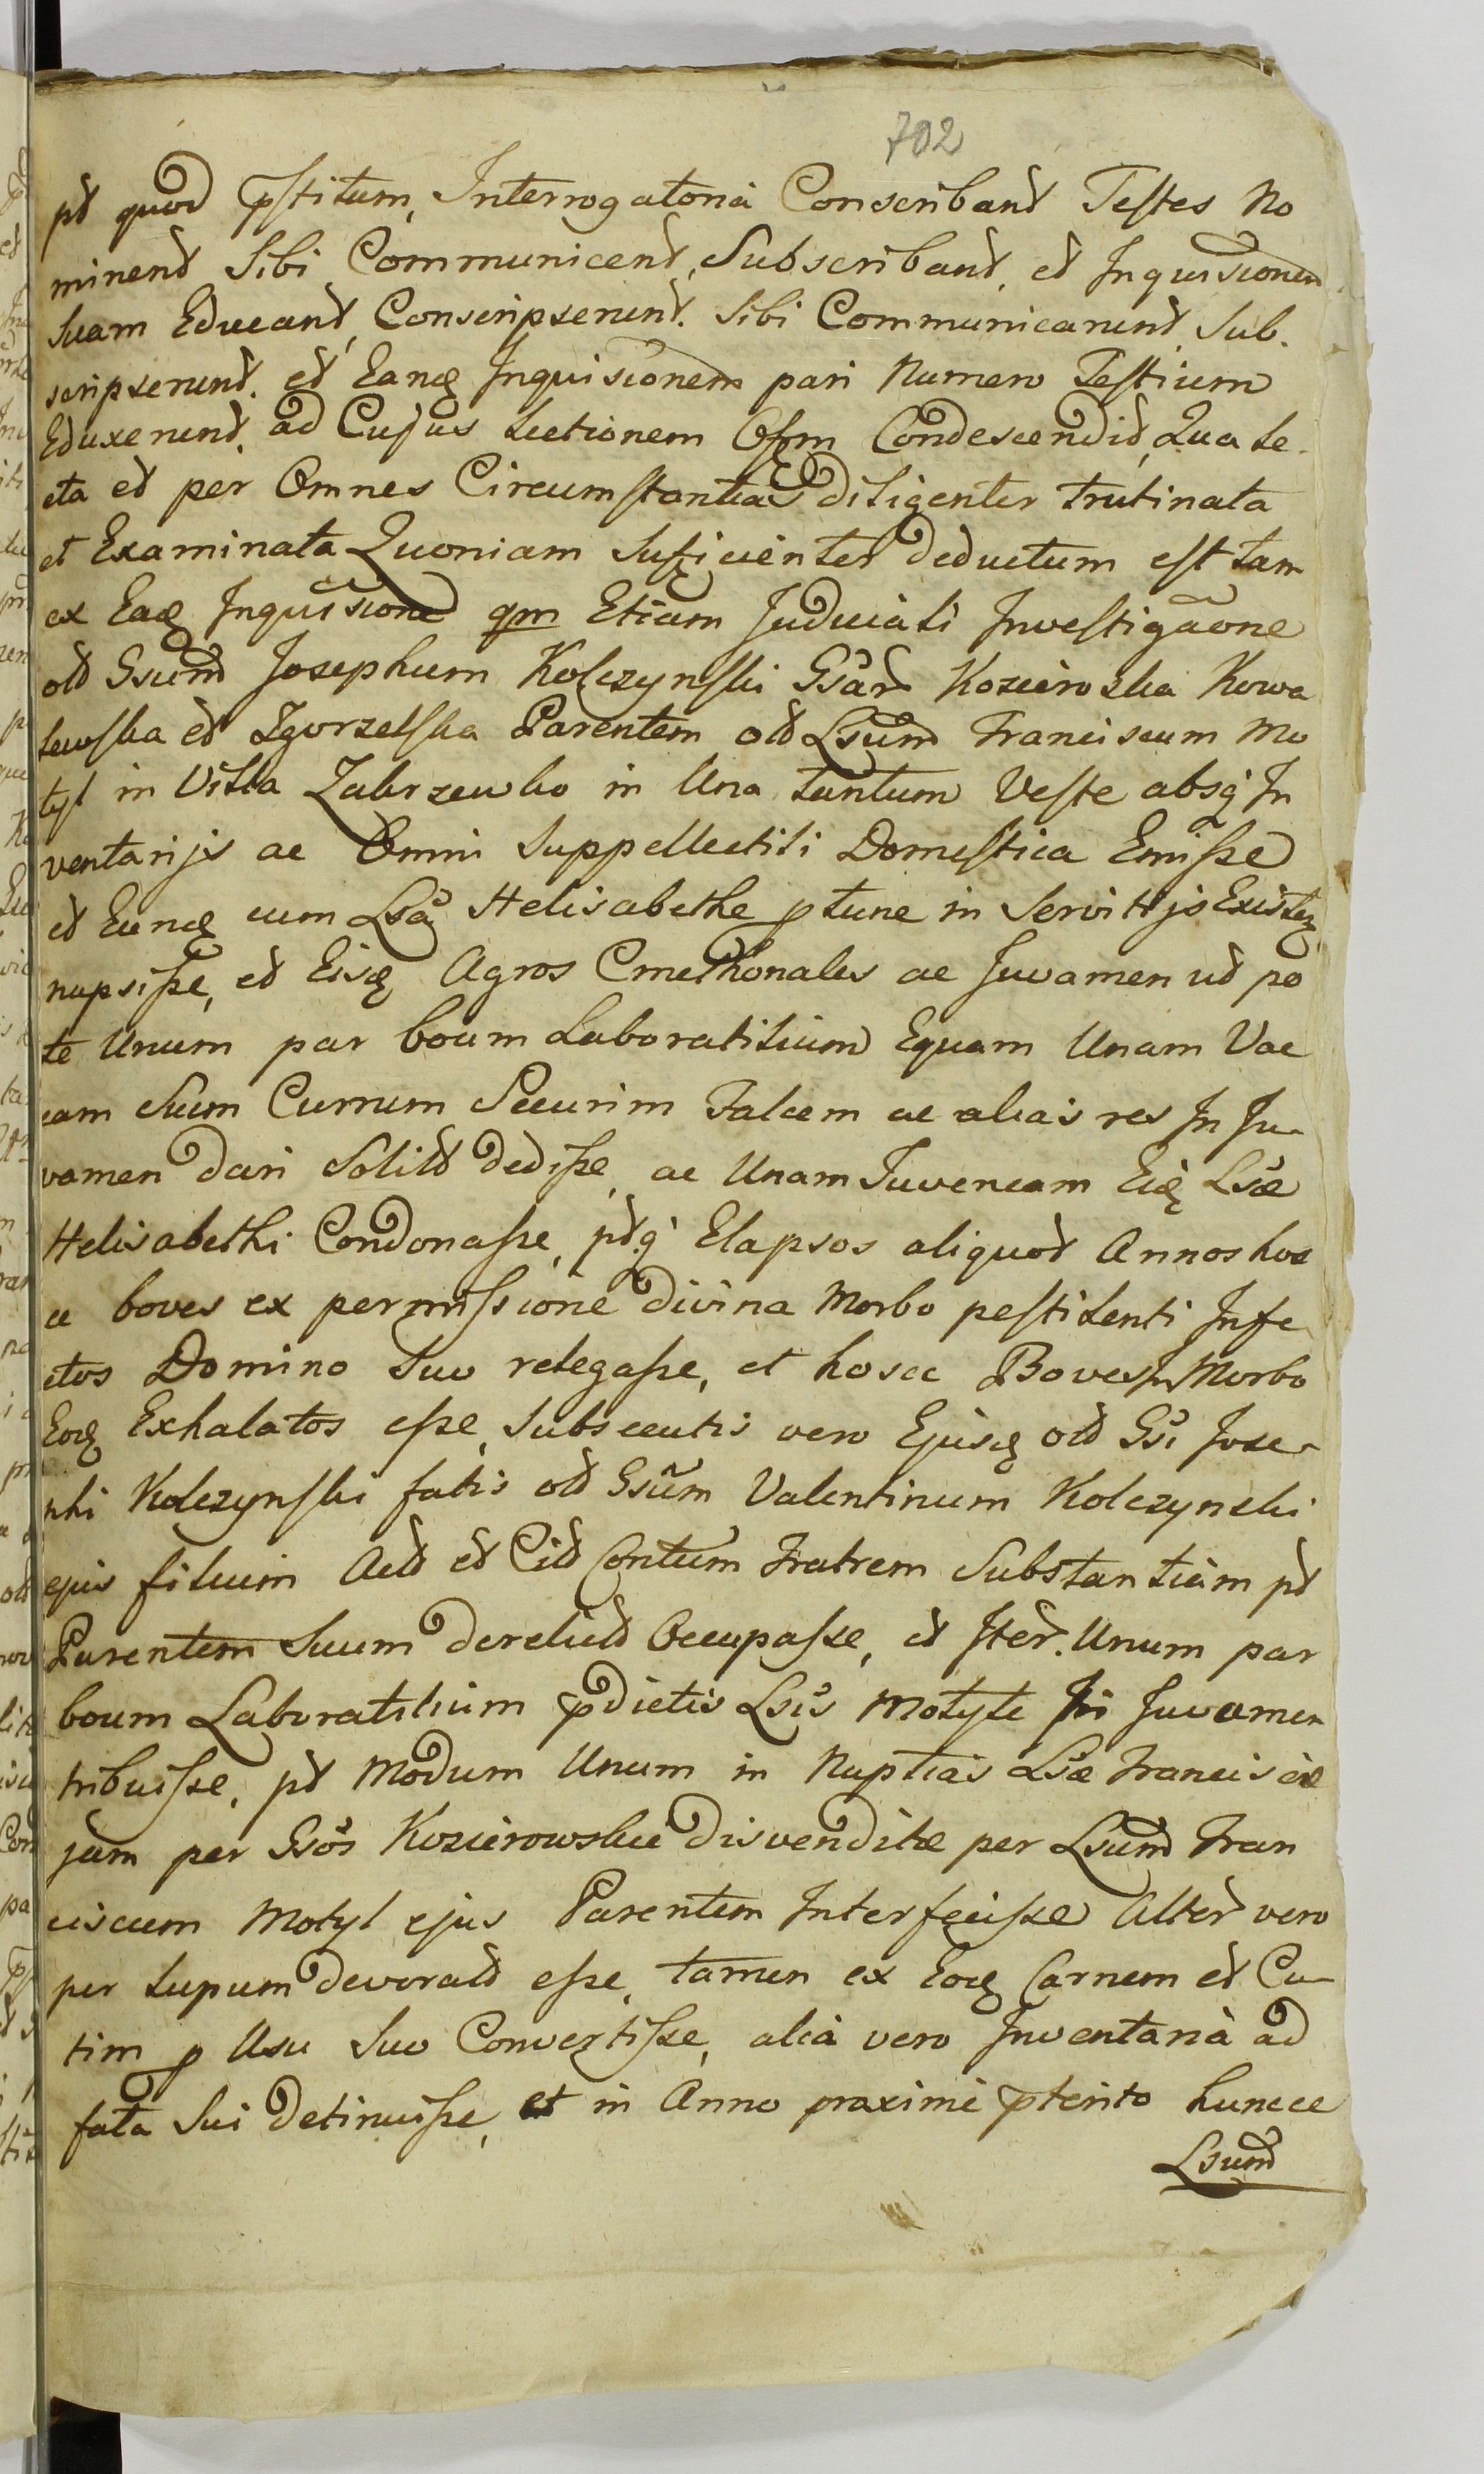 702
pt quod pstitum, Interrogatoria Conscribant Testes No
minent Sibi Communicent, Subscribant, et Inquisionem
Suam Educant, Conscripserunt. Sibi Communicarunt, Sub.
scripserunt. et Eandq Inquisionem pari Numero Testium
Eduxerunt, ad Cujus Lectionem Offm Condescendit, Qua Le.
cta et per Omnes Circumstantias diligenter trutinata
et Examinata Quoniam Suficienter deductum est tam
ex Eadq Inquisione qm Etiam Judiciali Investigaone
old Gsum Josephum Kolczynski Gsar Kozierowska Kowa
lewska et Zgorzelska Parentem old Lsum Franciscum Mo
tyl in Villa Zakrzewko in Una tantum Veste absq In
ventarijs ac Omni Suppellectili Domestica Emisse
et Eundq cum Lsa Helisabethe ptunc in Servitijs Existen
nupsisse, et Eisdq Agros Cmethonales ac Juvamen ut po
te Unum par boum Laboratilium Equam Unam Vac
cam Suem Currum Securim Falcem ac alias res In Ju-
vamen dari Solit dedisse, ac Unam Juvencam Eidq Lsae
Helisabethi Condonasse, ptq Elapsos aliquot Annos hos
ce boves ex permissione divina Morbo pestilenti Infe
ctos Domino Suo relegasse, et hosce Boves In Morbo
Eodq Exhalatos esse, Subsecutis vero Ejusdq old Gsi Jose-
phi Kolczynski fatis old Gsum Valentinum Kolczynski
ejus filium Act et Cit Contum Fratrem Substantiam pt
Parentem Suum derelict Occupasse, et Iter. Unum par
boum Laboratilium pdictis Lsis Motyle In Juvamen
tribuisse, pt Modum Unum in Nuptias Lsae Franciscae
jam per Gsos Kozierowskie disvenditae per Lsum Fran
ciscum Motyl ejus Parentem Interfecisse Alter vero
per Lupum devorat esse, tamen ex Eodq Carnem et Cu-
tim p Usu Suo Convertisse, alia vero Inventaria ad
fata Sui detinuisse, et in Anno proxime pterito huncce
Lsum